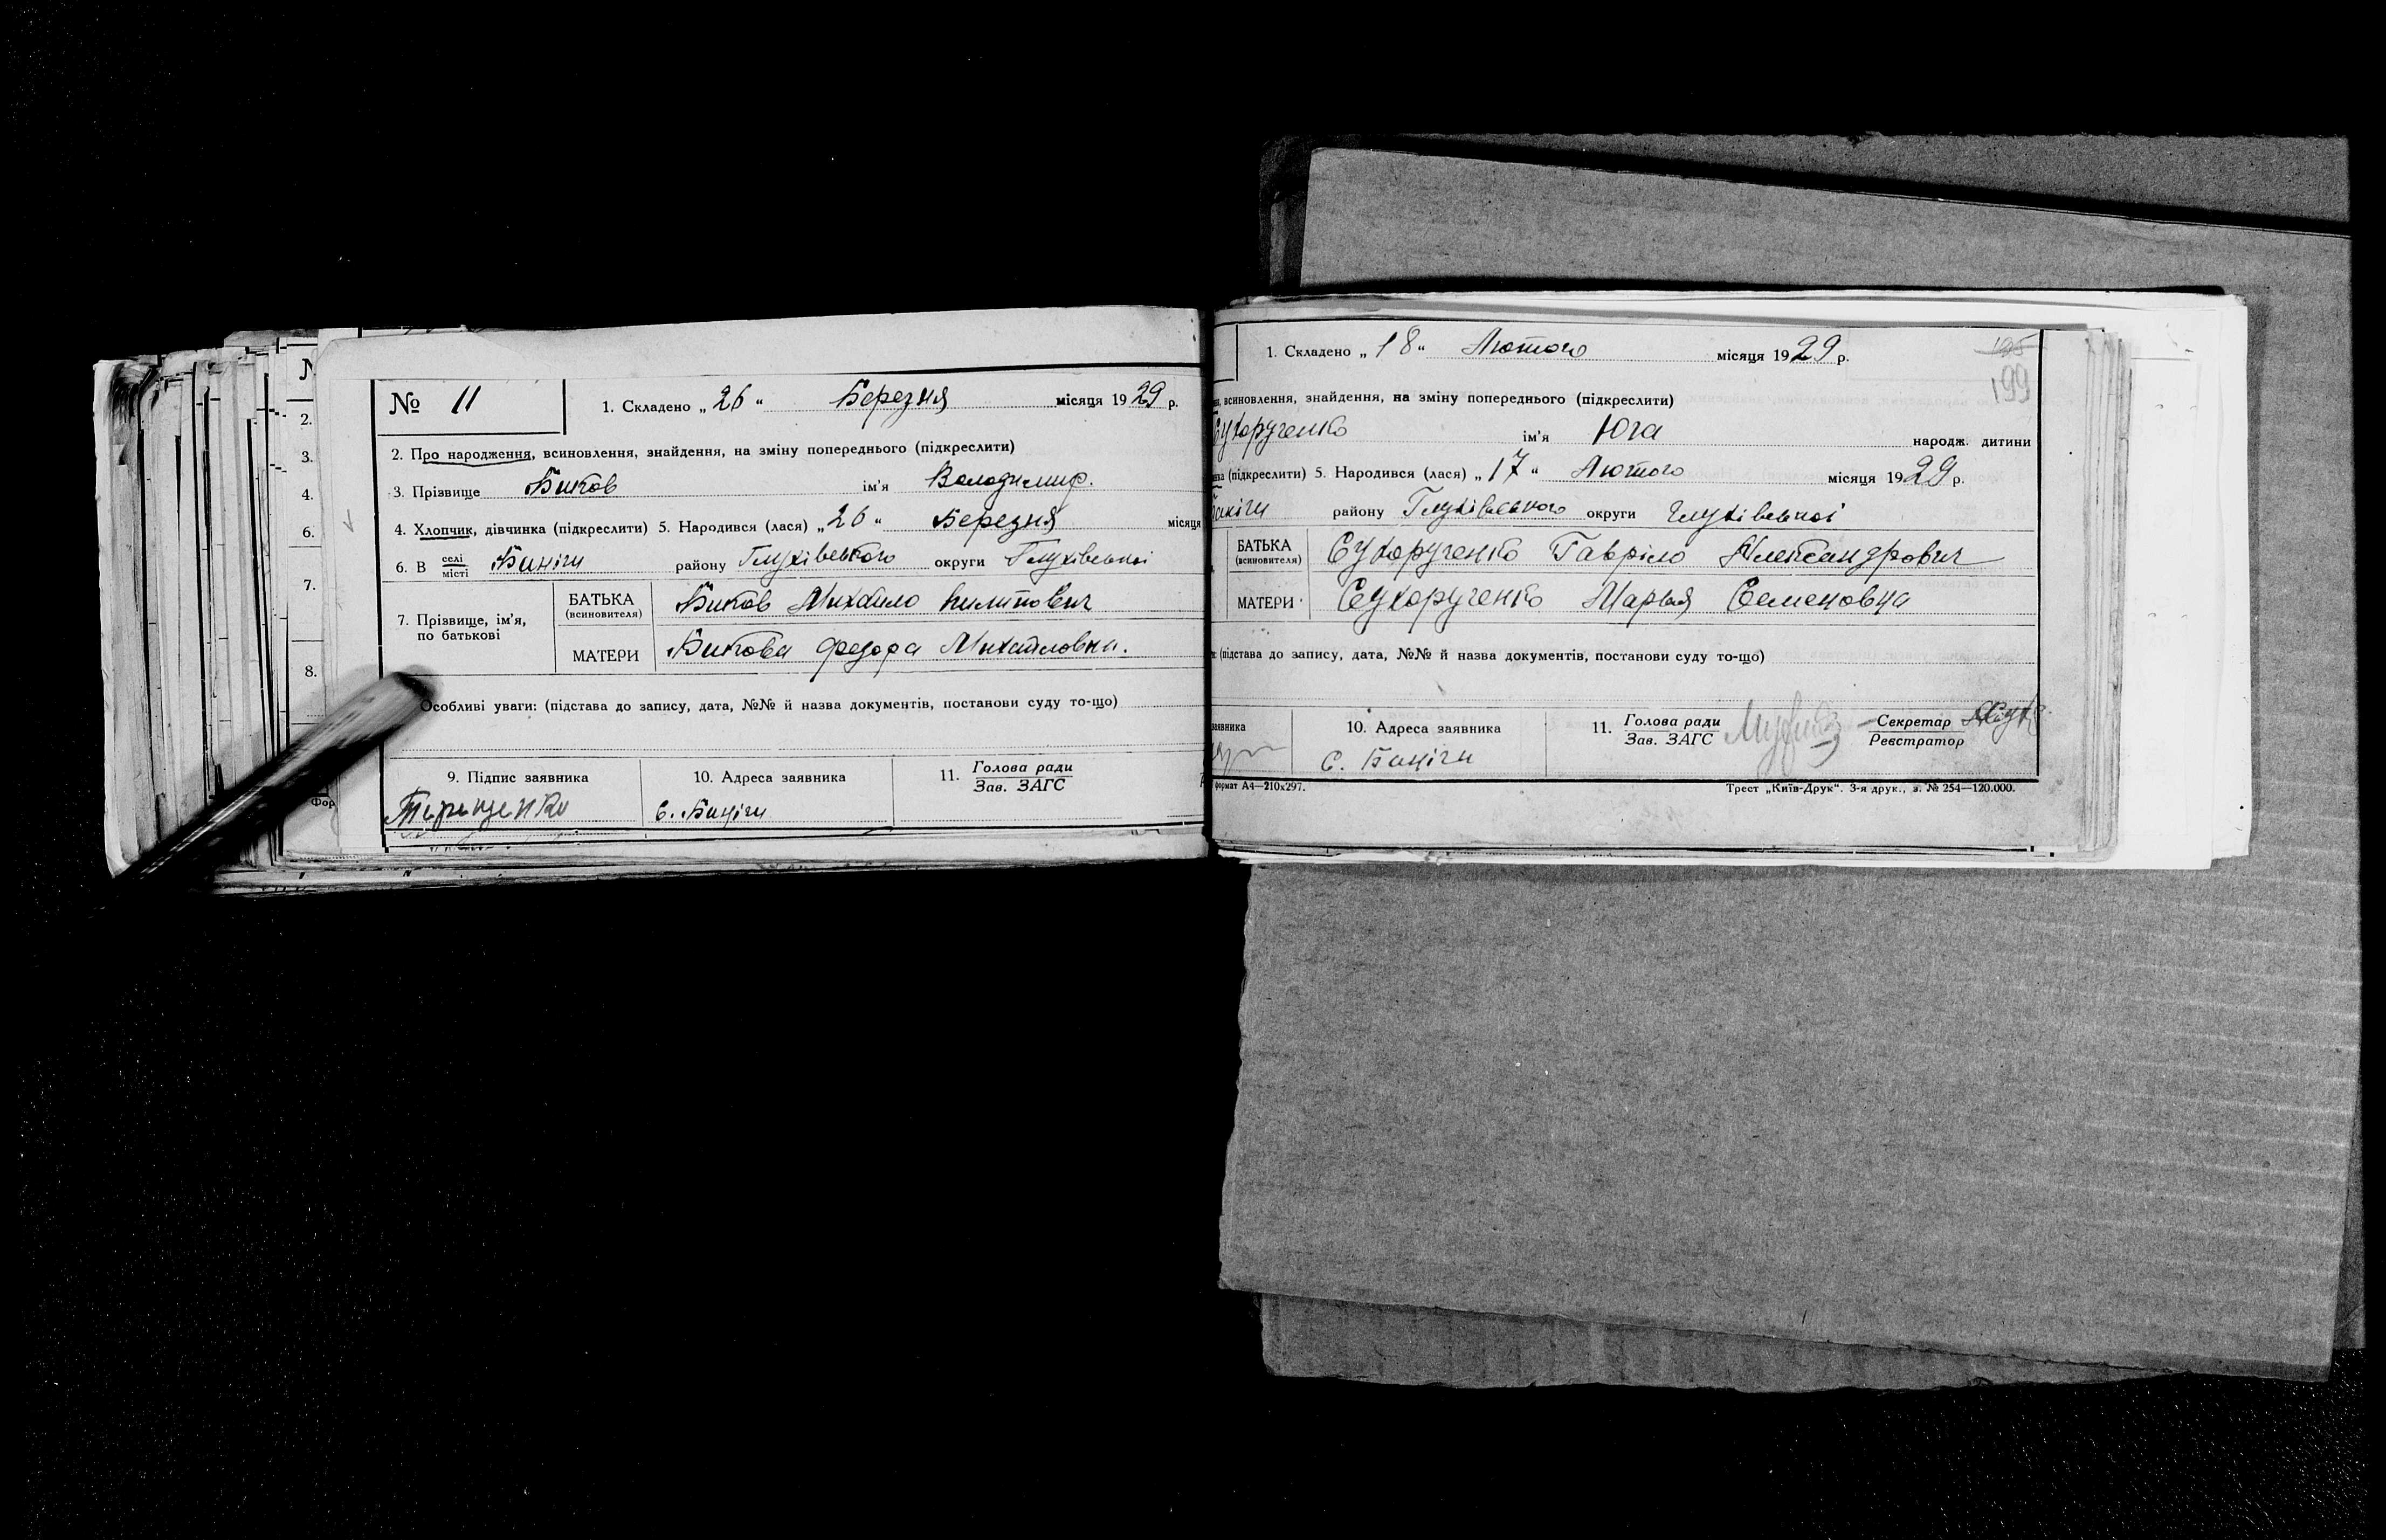 № 11
1. Складено „ 26 “ Березня місяця 1929 р.
2. Про народження, всиновлення, знайдення, на зміну попереднього (підкреслити)
3. Прізвище Биков ім'я Володимир.
4. Хлопчик, дівчинка (підкреслити) 5. Народився (лася) „ 26 “ Березня місяця
6. В селі місті Баніги району Глухівського округи Глухівської
7. Прізвище, ім'я, по батькові
БАТЬКА (всиновителя) Биков Михайло
МАТЕРИ Бикова Федора Михайловна.
Особливі уваги: (підстава до запису, дата, №№ й назва документів, постанови суду то-що)
9. Підпис заявника
10. Адреса заявника
11. Голова ради
Зав. ЗАГС
Терещенко
с. Баніги
N
2.
3.
4.
6.
7.
8.
Фор
1. Складено „ 18 “ Лютого місяця 1929 р.
195
199
всиновлення, знайдення, на зміну попереднього (підкреслити)
Сухорученко ім'я Юга народж. дитини
(підкреслити) 5. Народився (лася) „ 17 “ Лютого місяця 1929 р.
району Глухівського округи Глухівської
БАТЬКА (всиновителя) Сухорученко Гавріло Александрович
МАТЕРИ Сухорученко Марья Семеновна
(підстава до запису, дата, №№ й назва документів, постанови суду то-що)
заявника
10. Адреса заявника
с. Баніги
11. Голова ради
Зав. ЗАГС
Секретар
Реєстратор
формат А4—210х297.
Трест „Київ-Друк“. 3-я друк., з. № 254—120.000.